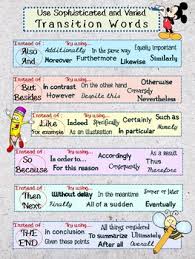 Use Sophisticated and Varied
Transition Words
Instead of... Try using...
Also Additionally In the same way Equally important
And Moreover Furthermore Likewise Similarly
Instead of... Try using...
But In contrast On the other hand Otherwise
Besides However Despite this Conversely
Nevertheless
Instead of... Try using...
Like Indeed Specifically Certainly Such as
For example As an illustration In particular Namely
Instead of... Try using...
So In order to... Accordingly As a result
Because For this reason Consequently Thus
Instead of... Try using...
Then Without delay In the meantime Sooner or later
Next Finally All of a sudden Eventually
Instead of... Try using... All things considered
THE In conclusion To summarize Ultimately
END Given these points After all Overall